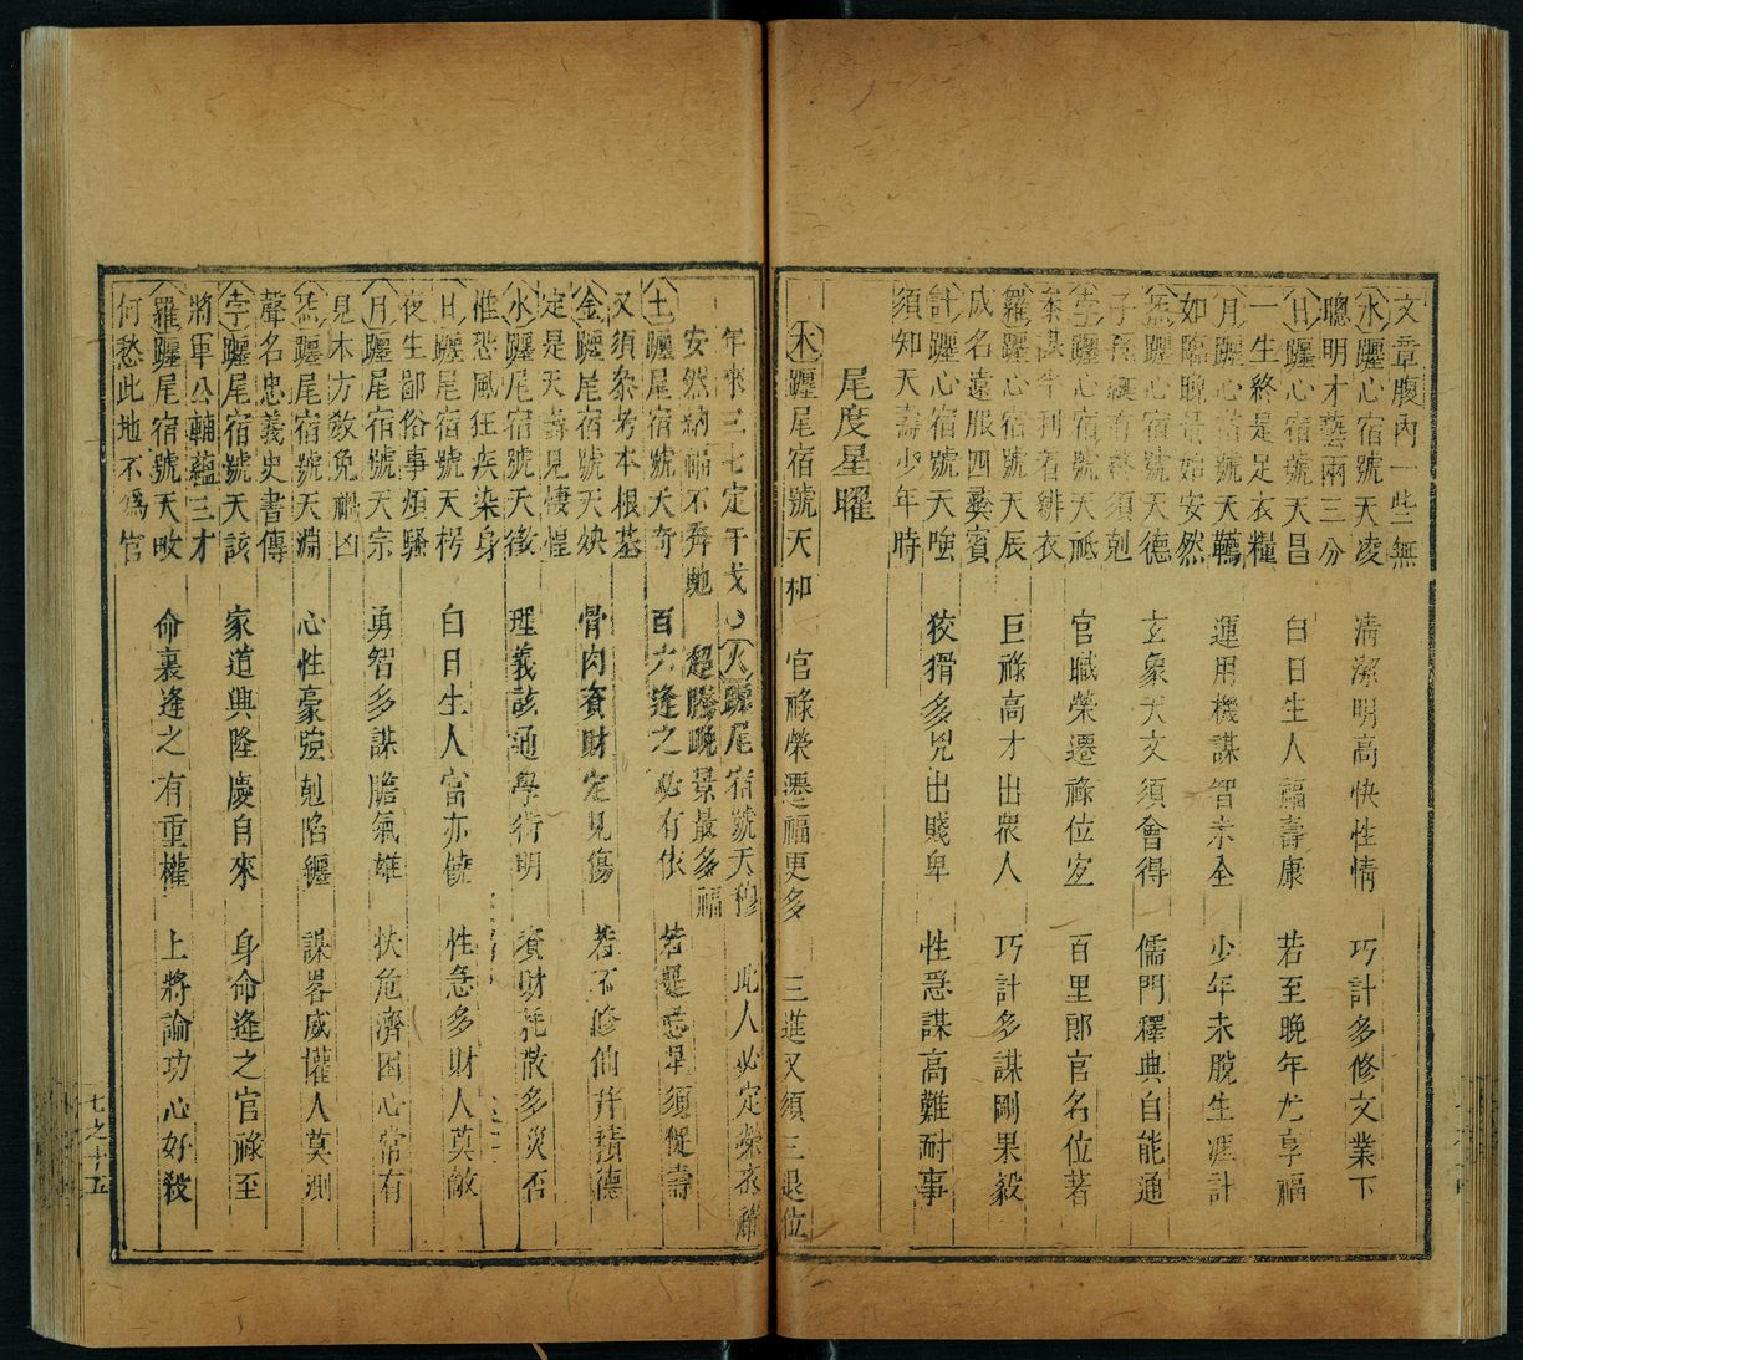 文章腹內一些無
水躔心宿號天凌　清潔明高快性情　巧計多修文業下
聰明才藝兩三分
日躔心宿號天昌　白日生人福壽康　若至晚年尤享福
一生終是足衣糧
月躔心宿號天　運用機謀智未全　少年未脫生涯計
如臨晚景始安然
炁躔心宿號天德　玄象天文須會得　儒門釋典自能通
子　須剋
孛躔心宿號天祗　官職榮遷祿位宏　百里郎官名位著
利着緋衣
羅躔心宿號天辰　巨祿高才出眾人　巧計多謀剛果毅
成名遠服四夷賓
計躔心宿號天　狡猾多兇出賤卑　性急謀高難耐事
須知夭壽少年時
尾度星曜
木躔尾宿號天　官祿榮遷福更多　三進又須三退位
年來三七定干戈　火躔尾宿號天穆　此人必定榮衣祿
安然納福不奔馳　超騰晚景最多福
土躔尾宿號天奇　百六逢之必有依　若是　早須促壽
又須叅考本根基
金躔尾宿號天　骨肉資財定見傷　若不修仙并積德
定是夭壽見悽惶
水躔尾宿號天後　理義該通學術明　資財耗散多災否
惟恐風狂疾染身
日躔尾宿號天枵　白日生人富亦饒　性急多財人莫敵
夜生鄙俗事煩騷
月躔尾宿號天宗　勇智多謀膽氣雄　扶危濟困心常有
見木方敎免禍凶
炁躔尾宿號天淵　心性豪強剋陷纏　謀畧威權人莫測
聲名忠義史書傳
孛躔尾宿號天該　家道興隆慶自來　身命逢之官祿至
將軍公輔蘊三才
羅躔尾宿號天　命裏逢之有重權　上將論功心好殺
何愁此地不爲官
七之十五